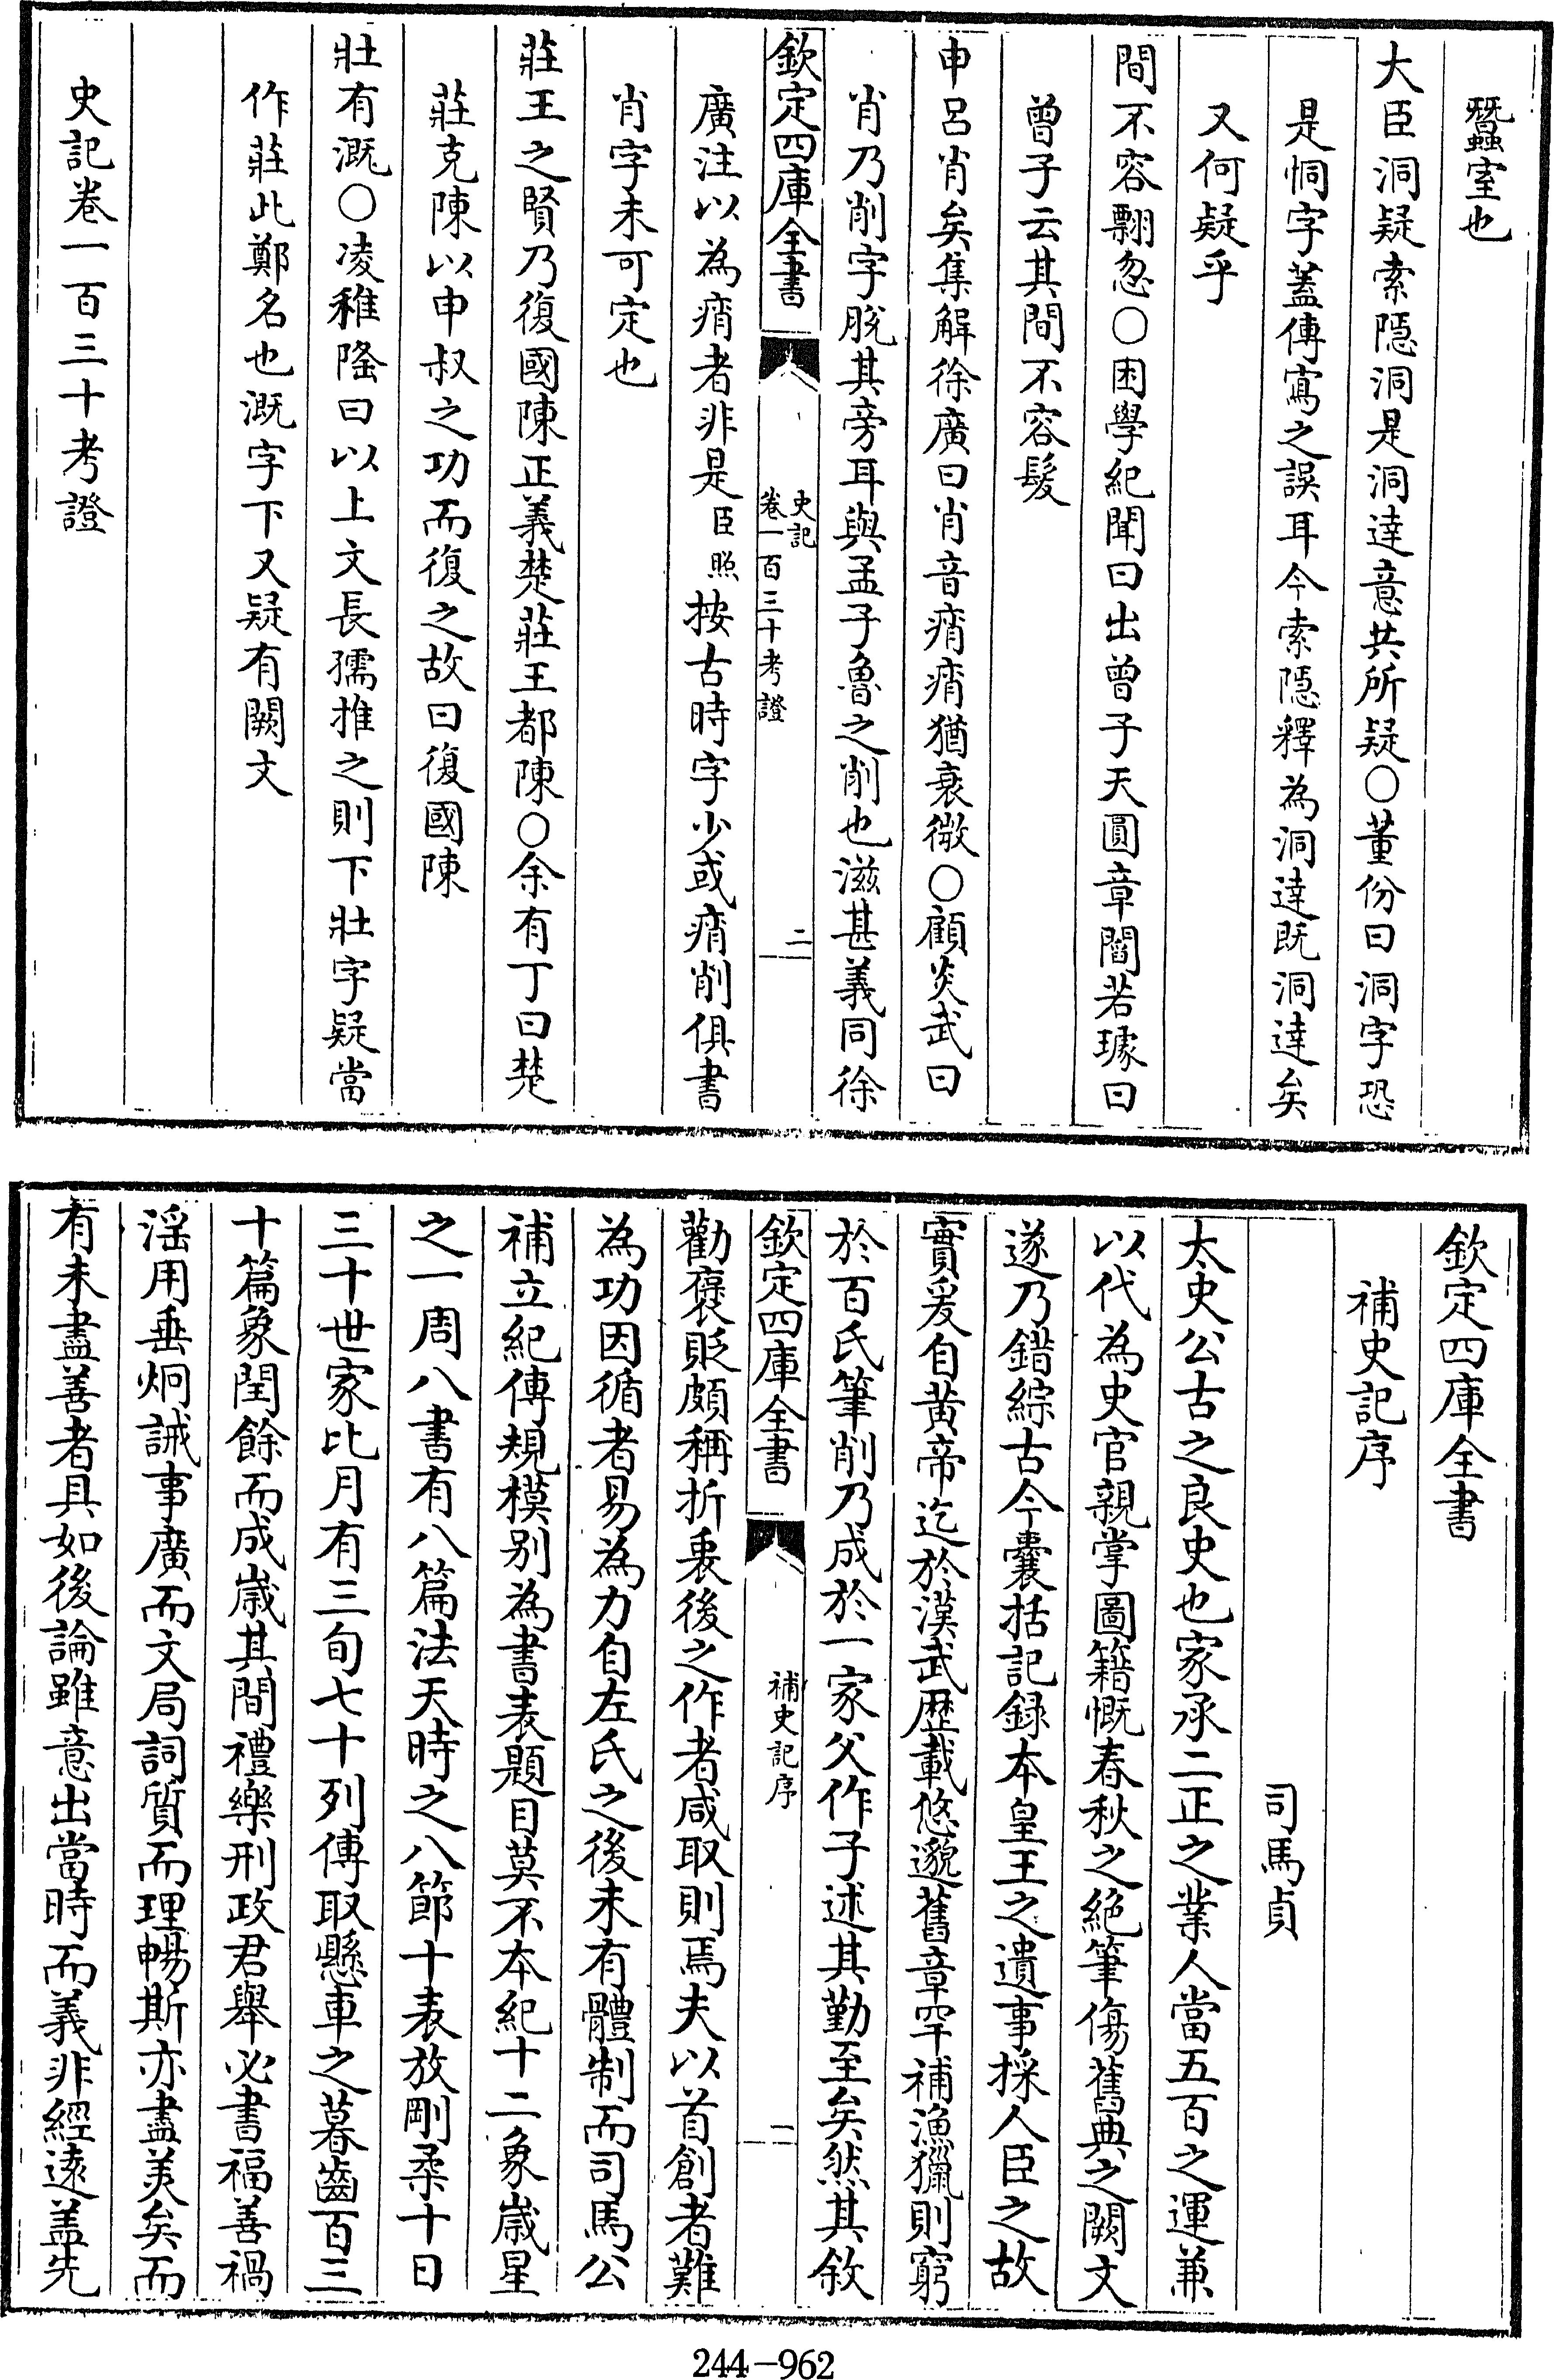 蠶室也
大臣洞疑索隱洞是洞達意共所疑○董份曰洞字恐
是恫字蓋傳寫之誤耳今索隱釋為洞達既洞達矣
又何疑乎
間不容翲忽○困學紀聞曰出曾子天圓章閻若璩曰
曾子云其間不容髮
申呂肖矣集解徐廣曰肖音痟痟猶衰微○顧炎武曰
肖乃削字脫其旁耳與孟子魯之削也滋甚義同徐
欽定四庫全書
史記
卷一百三十考證
二
廣注以為痟者非是臣照按古時字少或痟削俱書
肖字未可定也
莊王之賢乃復國陳正義楚莊王都陳○余有丁曰楚
莊克陳以申叔之功而復之故曰復國陳
壯有溉○凌稚隆曰以上文長孺推之則下壯字疑當
作莊此鄭名也溉字下又疑有闕文
史記卷一百三十考證
欽定四庫全書
補史記序
司馬貞
太史公古之良史也家承二正之業人當五百之運兼
以代為史官親掌圖籍慨春秋之絕筆傷舊典之闕文
遂乃錯綜古今囊括記録本皇王之遺事採人臣之故
實爰自黃帝迄於漢武歷載悠邈舊章罕補漁獵則窮
於百氏筆削乃成於一家父作子述其勤至矣然其敘
欽定四庫全書
補史記序
一
勸襃貶頗稱折衷後之作者咸取則焉夫以首創者難
為功因循者易為力自左氏之後未有體制而司馬公
補立紀傳規模别為書表題目莫不本紀十二象歲星
之一周八書有八篇法天時之八節十表放剛柔十日
三十世家比月有三旬七十列傳取懸車之暮齒百三
十篇象閏餘而成歲其間禮樂刑政君舉必書福善禍
淫用垂炯誡事廣而文局詞質而理暢斯亦盡美矣而
有未盡善者具如後論雖意出當時而義非經遠蓋先
244-962